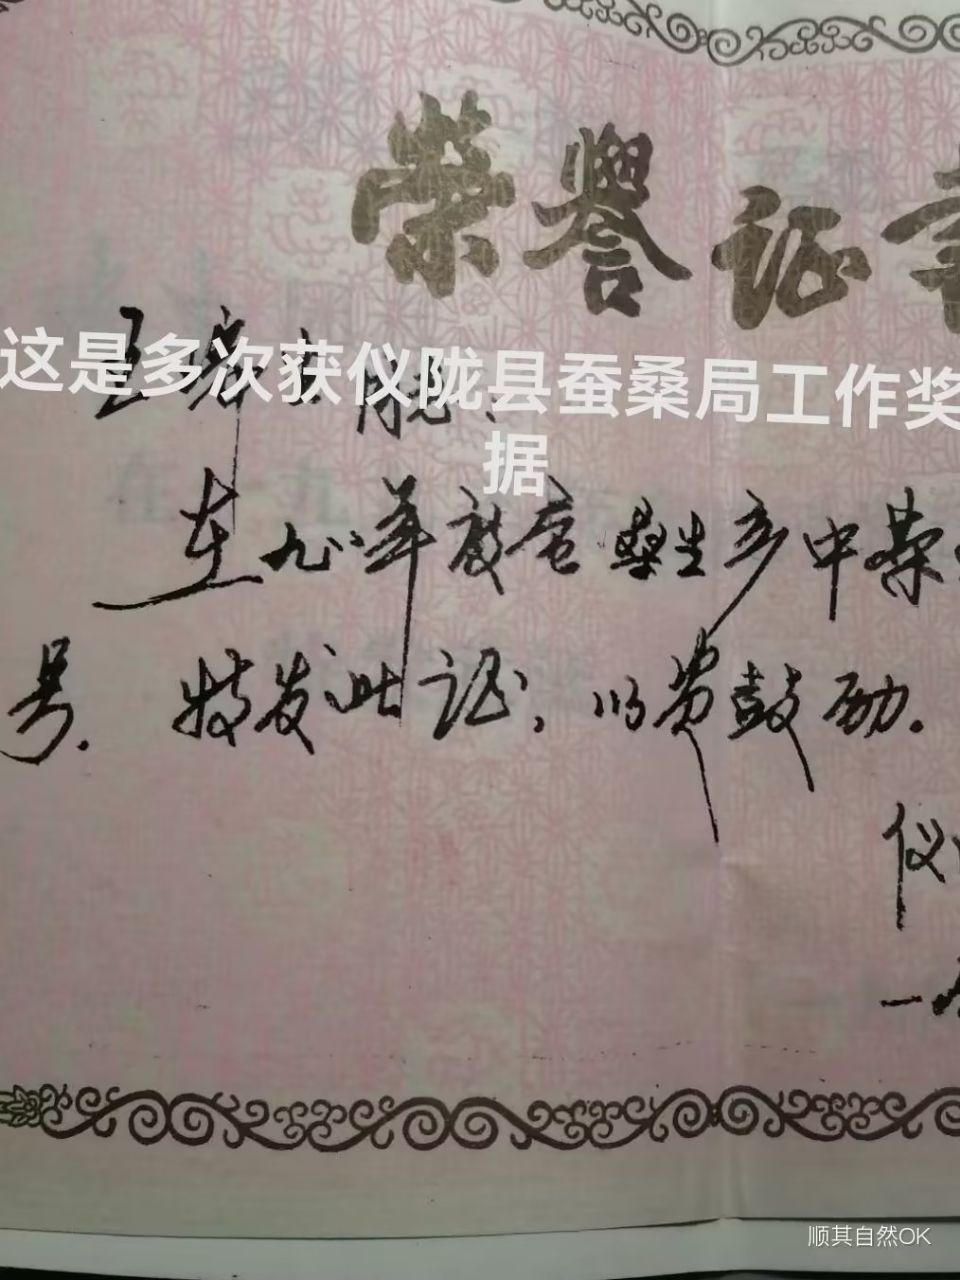 荣誉证
这是多次获仪陇县蚕桑局工作奖
据
在九〇年度蚕桑生产中荣
号. 特发此证, 以资鼓励.
仪
一
顺其自然OK